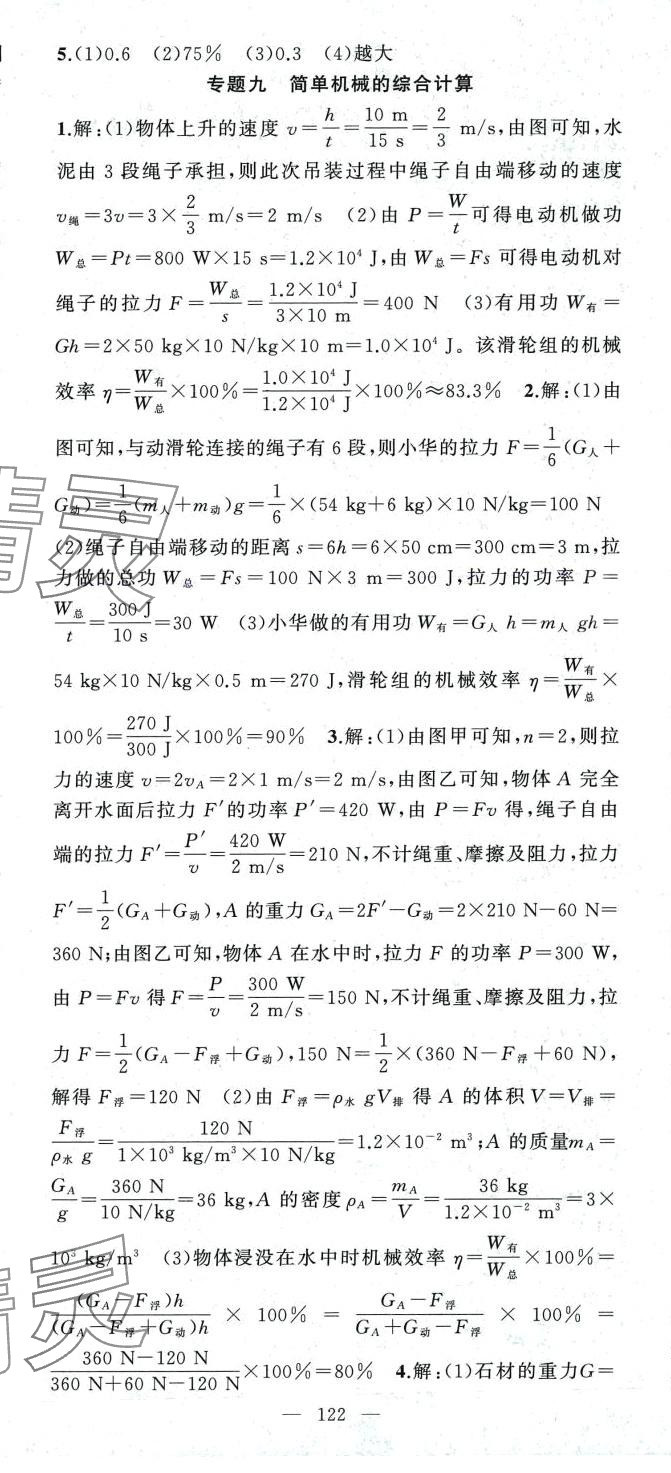 5.(1)0.6 (2)75% (3)0.3 (4)越大
专题九 简单机械的综合计算
1.解:(1)物体上升的速度 v=h/t=10 m/15 s=2/3 m/s,由图可知,水
泥由 3 段绳子承担,则此次吊装过程中绳子自由端移动的速度
v绳=3v=3×2/3 m/s=2 m/s (2)由 P=W/t可得电动机做功
W总=Pt=800 W×15 s=1.2×10⁴ J,由 W总=Fs 可得电动机对
绳子的拉力 F=W总/s=1.2×10⁴ J/3×10 m=400 N (3)有用功 W有=
Gh=2×50 kg×10 N/kg×10 m=1.0×10⁴ J。该滑轮组的机械
效率 η=W有/W总×100%=1.0×10⁴ J/1.2×10⁴ J×100%≈83.3% 2.解:(1)由
图可知,与动滑轮连接的绳子有 6 段,则小华的拉力 F=1/6(G人+
G动)=1/6(m人+m动)g=1/6×(54 kg+6 kg)×10 N/kg=100 N
(2)绳子自由端移动的距离 s=6h=6×50 cm=300 cm=3 m,拉
力做的总功 W总=Fs=100 N×3 m=300 J,拉力的功率 P=
W总/t=300 J/10 s=30 W (3)小华做的有用功 W有=G人 h=m人 gh=
54 kg×10 N/kg×0.5 m=270 J,滑轮组的机械效率 η=W有/W总×
100%=270 J/300 J×100%=90% 3.解:(1)由图甲可知,n=2,则拉
力的速度 v=2vA=2×1 m/s=2 m/s,由图乙可知,物体 A 完全
离开水面后拉力 F′的功率 P′=420 W,由 P=Fv 得,绳子自由
端的拉力 F′=P′/v=420 W/2 m/s=210 N,不计绳重、摩擦及阻力,拉力
F′=1/2(GA+G动),A 的重力 GA=2F′-G动=2×210 N-60 N=
360 N;由图乙可知,物体 A 在水中时,拉力 F 的功率 P=300 W,
由 P=Fv 得 F=P/v=300 W/2 m/s=150 N,不计绳重、摩擦及阻力,拉
力 F=1/2(GA-F浮+G动),150 N=1/2×(360 N-F浮+60 N),
解得 F浮=120 N (2)由 F浮=ρ水 gV排 得 A 的体积 V=V排=
F浮/ρ水 g=120 N/1×10³ kg/m³×10 N/kg=1.2×10⁻² m³;A 的质量mA=
GA/g=360 N/10 N/kg=36 kg,A 的密度 ρA=mA/V=36 kg/1.2×10⁻² m³=3×
10³ kg/m³ (3)物体浸没在水中时机械效率 η=W有/W总×100%=
(GA-F浮)h/(GA-F浮+G动)h × 100% = GA-F浮/GA+G动-F浮 × 100% =
360 N-120 N/360 N+60 N-120 N×100%=80% 4.解:(1)石材的重力G=
— 122 —
精灵
精灵